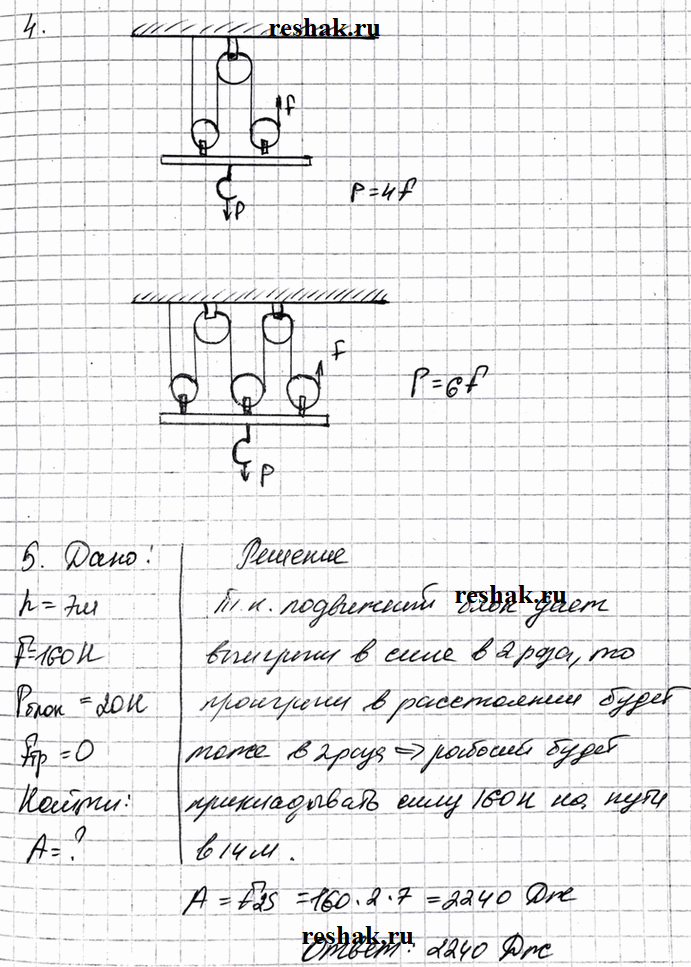 4.
reshak.ru
F
P
P=4F
F
P=6F
P
5. Дано:
Решение
h=7м
Т.к. подвижный блок дает
reshak.ru
F=160Н
выигрыш в силе в 2 раза, то
Pблок =20Н
проигрыш в расстоянии будет
Fтр =0
тоже в 2 раза => рабочий будет
Найти:
прикладывать силу 160Н на пути
A=?
в 14 м.
A = F2S =160·2·7 =2240 Дж
reshak.ru
Ответ: 2240 Дж